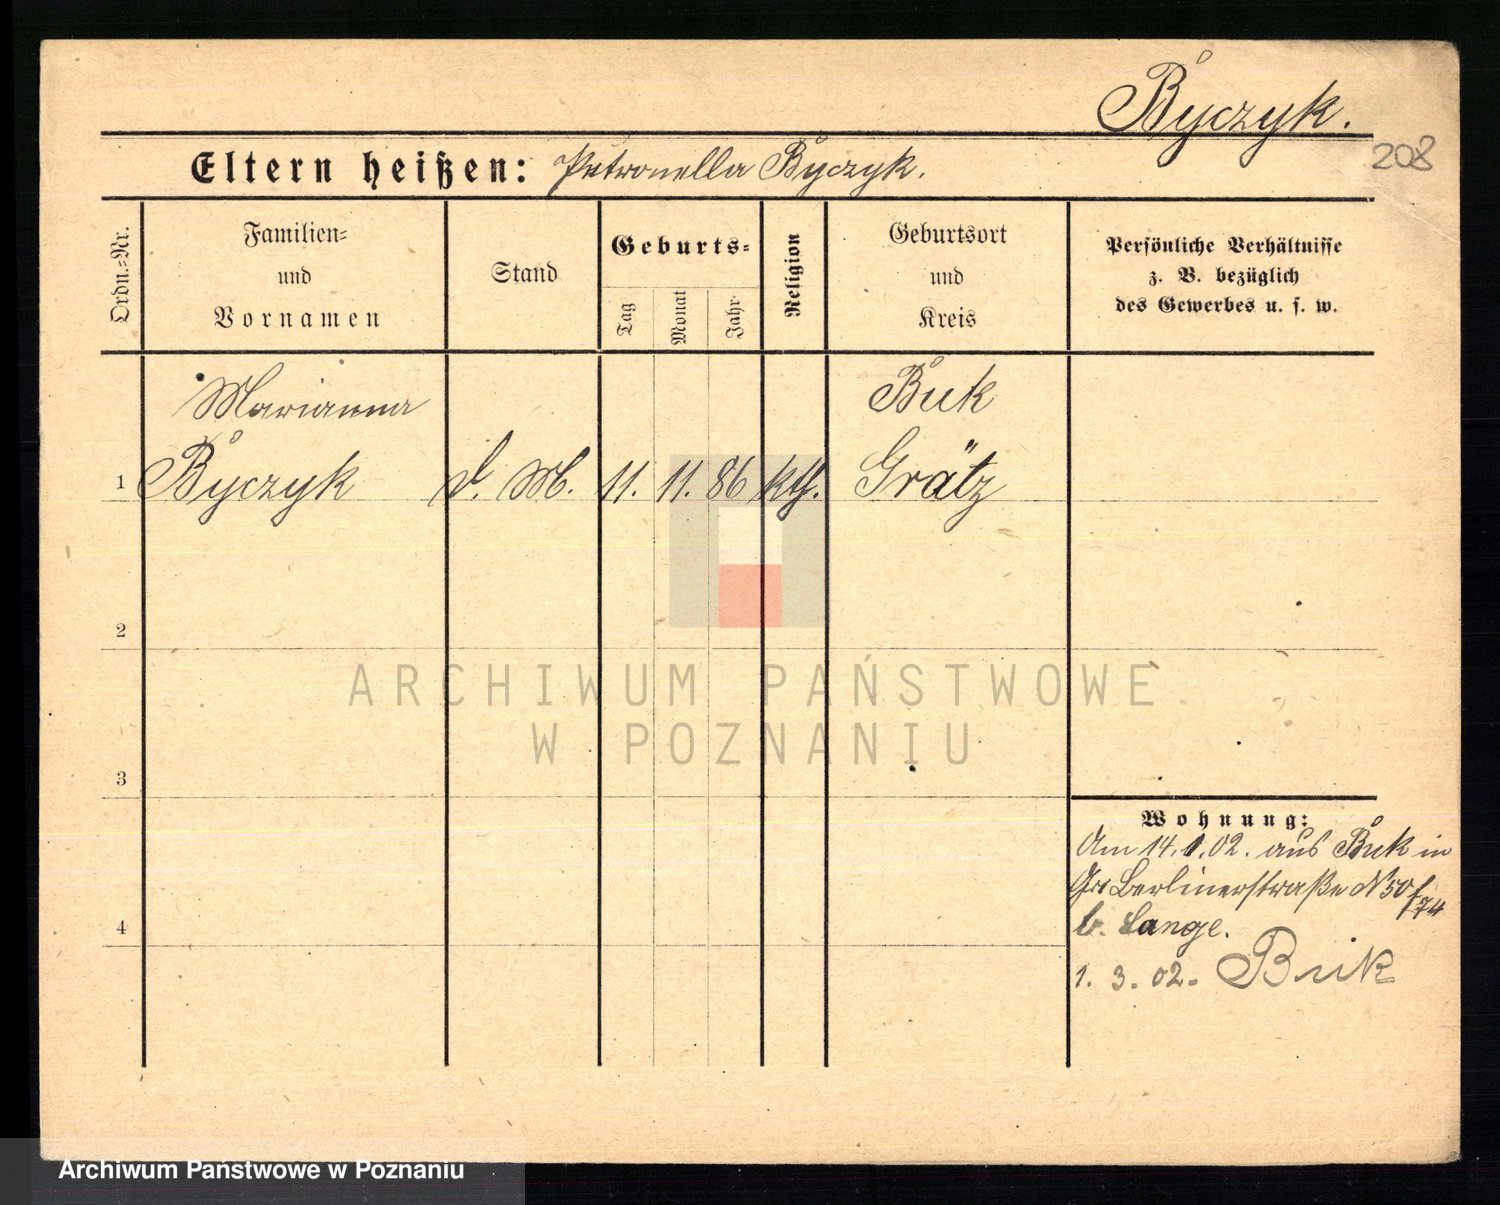 Byczyk.
208
Eltern heißen: Petronella Byczyk.
Ordn.-Nr.
Familien-
und
Vornamen
Stand
Geburts-
Tag
Monat
Jahr
Religion
Geburtsort
und
Kreis
Persönliche Verhältnisse
z. B. bezüglich
des Gewerbes u. s. w.
Marianna
Buk
1 Byczyk d. M. 11. 11. 86 kth. Grätz
2
ARCHIWUM PAŃSTWOWE
W POZNANIU
3
Wohnung:
Am 14.1.02. aus Buk in
Gr Berlinerstraße N 50
/74
4
b. Lange.
1. 3. 02. Buk
Archiwum Państwowe w Poznaniu